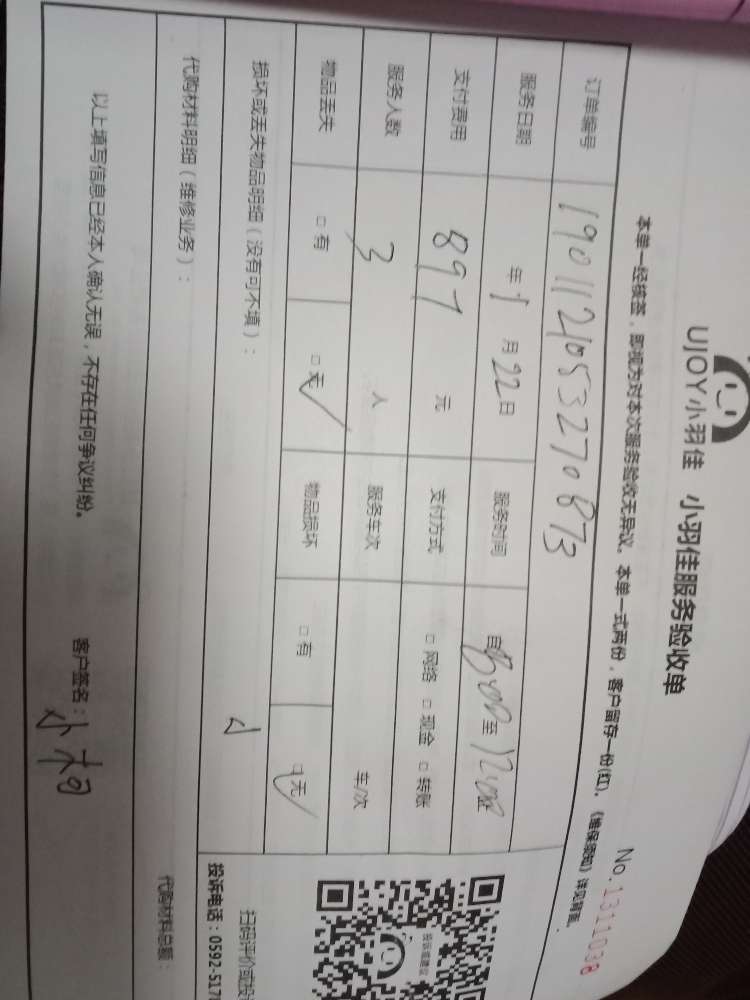 UJOY小羽佳 小羽佳服务验收单
No.1311038
本单一经核签，即视为对本次服务验收无异议。本单一式两份，客户留存一份(红)。《维保须知》详见背面。
订单编号 1901121053270873
服务日期 年1月22日 服务时间 自 至
支付费用 897 元 支付方式 □ 网络 □ 现金 □ 转账
服务人数 3 人 服务车次 车/次
物品丢失 □ 有 □ 无 物品损坏 □ 有 无
损坏或丢失物品明细（没有可不填）：
代购材料明细（维修业务）：
代购材料总额：
以上填写信息已经本人确认无误，不存在任何争议纠纷。
客户签名：
扫码评价或投
投诉电话：0592-517
投诉或建议